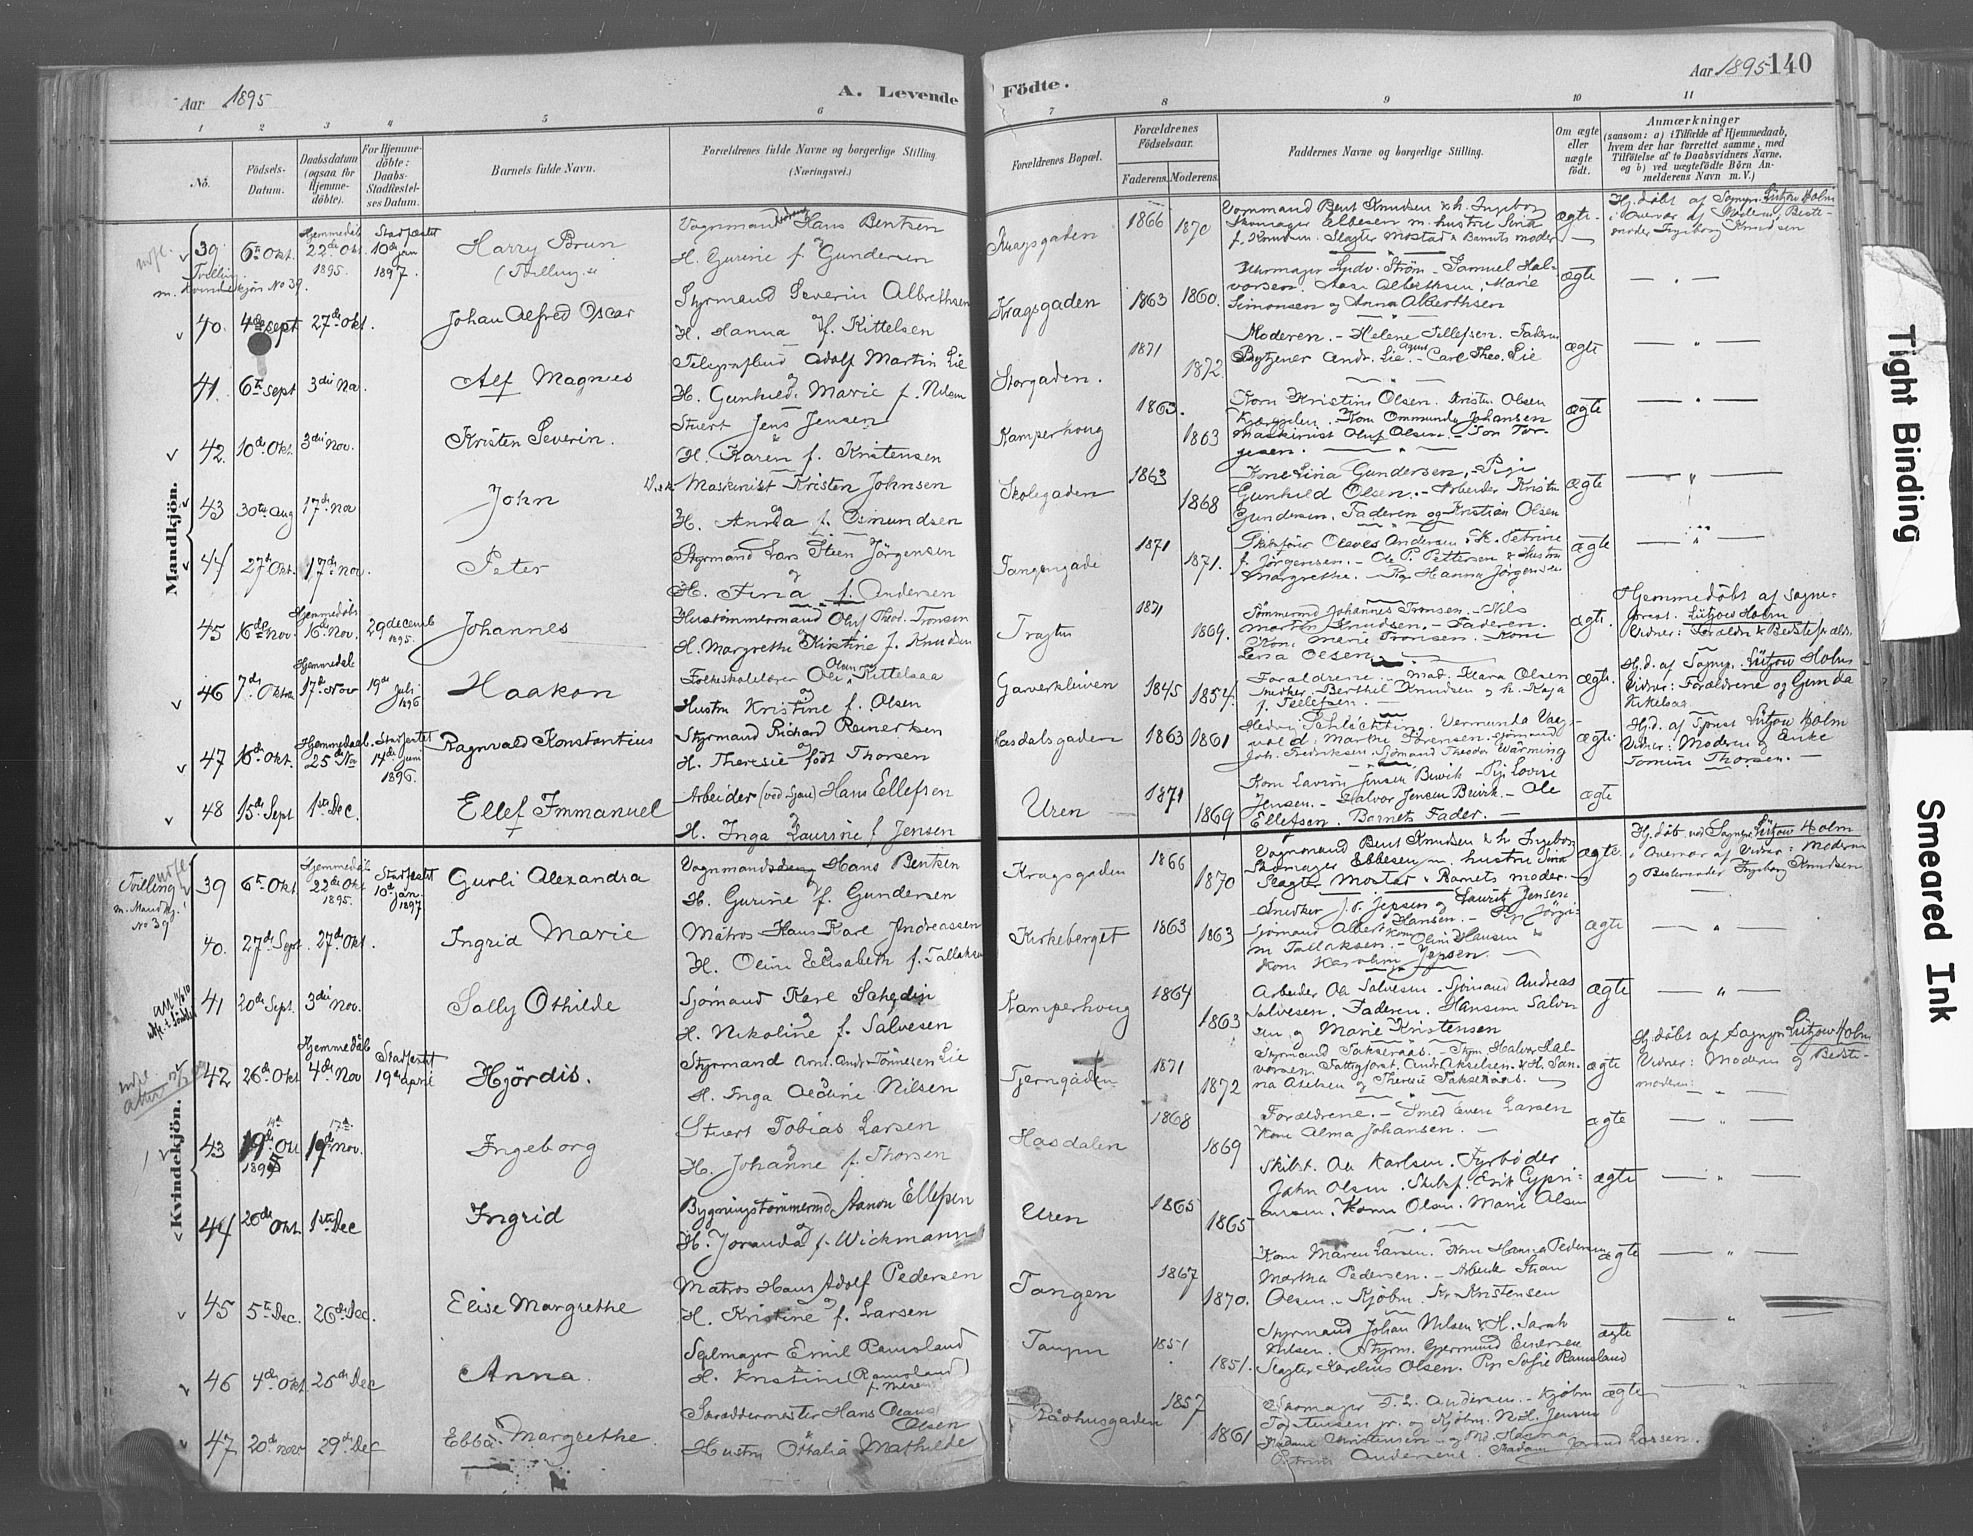 Aar 1895
A. Levende Födte.
Aar 1895 140
1 2 3 4 5 6 7 8 9 10 11
No.
Födsels-Datum.
Daabsdatum (ogsaa for Hjemmedöbte).
For Hjemmedöbte: Daabs-Stadfæstelses Datum.
Barnets fulde Navn.
Forældrenes fulde Navne og borgerlige Stilling (Næringsvei.)
Forældrenes Bopæl.
Forældrenes Födselsaar.
Faderens. Moderens.
Faddernes Navne og borgerlige Stilling.
Om ægte eller uægte födt.
Anmærkninger
(saasom: a) i Tilfælde af Hjemmedaab, hvem der har forrettet samme, med Tilföielse af to Daabsvidners Navne, og b) ved uægtefödte Börn Anmelderens Navn m. V.)
Mandkjön.
39 6te Okt. Hjemmedöb 22de Okt. 1895. Stadfæstet 10de jan 1897. Harry Brun (Tvilling)
Vognmand Hans Bentsen
H. Gurine f. Gundersen
Kragsgaden 1866 1870
Vognmand Bent Knudsen & h. Ingeborg
Skomager Ebbesen m. hustru Sina
f. Knudsen. Slagter Mostad & Barnets moder
ægte.
Hj. döbt af Sognepr. Lützow Holm
i Overvær af Moderen, Bestemoder Ingeborg Knudsen
Tvilling m. Kvindekjön No 39.
40. 4de sept 27de Okt. Johan Alfred Oscar
Styrmand Severin Albrethsen
H. Hanna f. Kittelsen
Kragsgaden 1863 1860.
Uhrmager Ludv. Ström - Samuel Halvorsen. Aase Alberthsen, Marie
Simonsen og Anna Alberthsen
ægte
41. 6te sept 3die No. Alf Magnus
Telegrafbud Adolf Martin Lie
H. Gunhild Marie f. Nilsen
Storgaden. 1871 1872.
Moderen. - Helene Tellefsen. Faderen
Andr. Lie. - Carl Theo. Lie
ægte
42. 10de Okt. 3die Nov. Kristen Severin.
Stuert Jens Jensen
H. Karen f. Kristensen
Kamperhoug 1863. 1863
Kone Kristine Olsen. Kristen Olsen
Kone Ommunda Johansen
Maskinist Oluf Olsen. - Ton Torjesen.
ægte
43 30te aug 17de Nov John
Maskinist Kristen Johnsen
H. Anna f. Osmundsen
Skolegaden 1863 1868
Kone Lina Gundersen, Pige
Gunhild Olsen. - Arbeider Kristen
Gundersen. Faderen og Kristian Olsen
ægte
44 27de Okt. 17de nov. Peter
Styrmand Lars Steen Jörgensen
H. Fina f. Andersen
Tangengade 1871 1871.
Skibsförer Olaves Andersen & K. Petrine
f. Jörgensen. - Ole P. Pettersen & Hustru
Margrethe. - Pige Hanna Jörgensen
ægte
45 16de Nov. Hjemmedöbt 16de Nov. 29 decemb 1895. Johannes
Hustömmermand Oluf Theod. Tronsen
H. Margrethe Kirstine f. Knudsen
1871 1869.
Tömmermd Johannes Tronsen. - Nils
Martin Knudsen. - Faderen.
Kone Marie Tronsen. Kone
Lena Olsen
ægte.
Hjemmedöbt af Sognepræst. Lützow Holm
Vidner: Forældre & Bedsteforældre.
46 7de Oktbr Hjemmedöb 17de Nov 19de Juli 1896 Haakon
Folkeskolelærer Ole Olsen Kittelsaa
Hustru Kristine f. Olsen
Garverkleiven 1845 1854.
Forældrene - Mad. Klara Olsen
Snedker Berthel Knudsen og h. Kaja
f. Tellefsen.
ægte.
Hj.d. af Sognepr. Lützow Holm
Vidner: Forældrene og Gunda
47 16de Okt. Hjemmedaab 25de No Stadfæstet 14de Juni 1896. Ragnvald Konstantius
Styrmand Richard Reinertsen
H. Theresie född Thorsen
Hasdalsgaden 1863 1861
Hedvig Schlachting. Vermunda
Marthe Sörensen. Sjömand
Joh. Fredriksen. Sjömand Theodor Wärming
ægte.
Hj.d. af Spræst Lützow Holm
Vidner: Moderen og Enke
Tomine Thorsen. -
48 15de Sept 1ste Dec. Ellef Immanuel
Arbeider (ved Sjøen) Hans Ellefsen
H. Inga Laurine f Jensen
Uren 1871 1869
Kone Lavine Jensen Buvik - Pige Lovise
Jensen. - Halvor Jensen Buvik. - Ole
Ellefsen. Barnets Fader. -
ægte
Kvindekjön.
Tvilling m. Mandkj. No 39
39 6te Okt Hjemmedöb 22de Okt 1895. Stadfæstet 10de jan 1897 Gurli Alexandra
Vognmand Hans Bentsen
H. Gurine f. Gundersen
Kragsgaden 1866 1870
Vognmand Bent Knudsen & h. Ingeborg
Skomager Ebbesen m. hustru Sina
Slagter Mostad & Barnets moder.
ægte.
Hj. döbt ved Sognepr. Lützow Holm
i Overvær af Vidner: Moderen
og Bestemoder Ingeborg Knudsen
40. 27de Sept. 27de Okt. Ingrid Marie
Matros Hans Karl Andreassen
H. Oline Elisabeth f. Tallaksen
Kirkeberget 1863 1863
Snedker J. P. Jepsen og Laurits Jensen
Sjömand Albert Hansen. - Pige Jörgine Tallaksen. - Kone Oline Hansen &
Kone Karoline Jepsen.
ægte
41 20de Sept. 3die Nov. Sally Othilde
Sjömand Karl Schedin
H. Nikoline f. Salvesen
Kamperhoug 1864 1863
Arbeider Ole Salvesen. Sjömand Andreas
Salvesen. Faderen. Hansine Salvesen og Marie Kristensen
ægte
42 26de Okt Hjemmedöb 4de Nov Stadfæstet 19de april Hjördis.
Styrmand Arnt Andr. Tönnesen Lie
H. Inga Aldine Nilsen
Tjerngaden 1871 1872
Styrmand Taksraas. - Styrm. Halvor Halvorsen. Fattigforst. Andr. Akselsen & H. Sanna Akselsen og Therese Taksraas.
ægte
Hj. döbt af Sognepr. Lützow Holm
Vidner: Moderen og Bestemoder:
43 19de Okt 1895 19de Nov. 17de Ingeborg
Stuert Tobias Larsen
H. Johanne f. Thorsen
Hasdalen 1868 1869
Forældrene. - Smed Even Larsen
Kone Alma Johansen. -
ægte
44 26de Okt 1ste Dec Ingrid
Bygningstömmermd Aanon Ellefsen
H. Joranda f. Wickmann
Uren 1865 1865
Skibst. Ole Karlsen. Fyrböder
John Olsen. Skibsf. Erik Cypriansen. Karen Olsen. Marie Olsen
ægte
45 5te Dec. 26de Dec. Elise Margrethe
Matros Hans Adolf Pedersen
H. Kristine f. Larsen
Tangen 1867 1870.
Kone Maren Larsen. Kone Hanna Pedersen
Martha Pedersen. - Arbeider Johan
Olsen. - Kjöbm. Kr. Kristensen
ægte
46 4de Okt 26de Dec Anna.
Seilmager Emil Ramsland
H. Kristine (Ramsland) f. Nilsen
Tangen 1851 1851.
Styrmand Johan Nilsen & H. Sarah
Nilsen. Styrm. Gjermund Evensen
Slagter Karelius Olsen. Pige Sofie Ramsland
ægte
47 20de nov 29de Dec Ebba Margrethe.
Skræddermester Hans Olaus Olsen
Hustru Othalia Mathilde
Raadhusgaden 1857 1861
Skomager F. L. Andersen. - Kjöbm
Torstensen jr. og Kjöbm. N. H. Jensen
Madame Christensen og Md. Hanna
Andersen. Madam Larsen.
ægte
Tight Binding
Smeared Ink